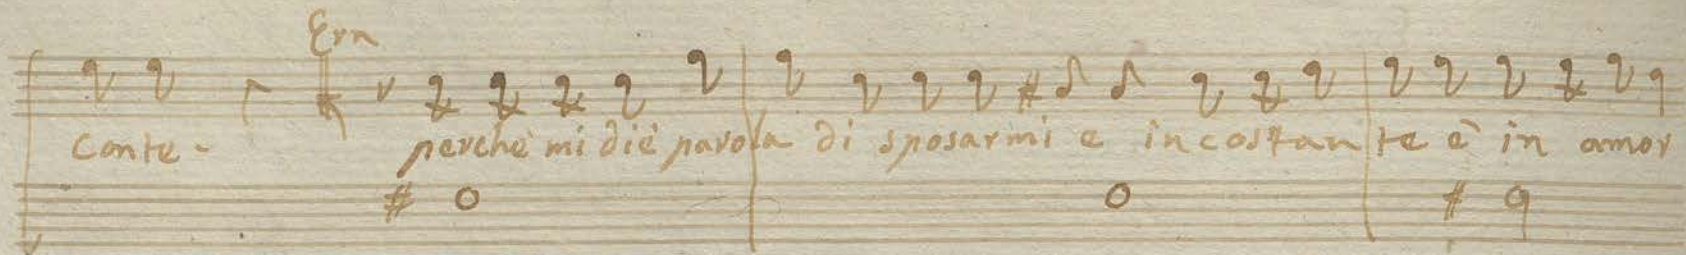 Ern
Conte - perchè mi diè parola di sposarmi e incostante è in amor